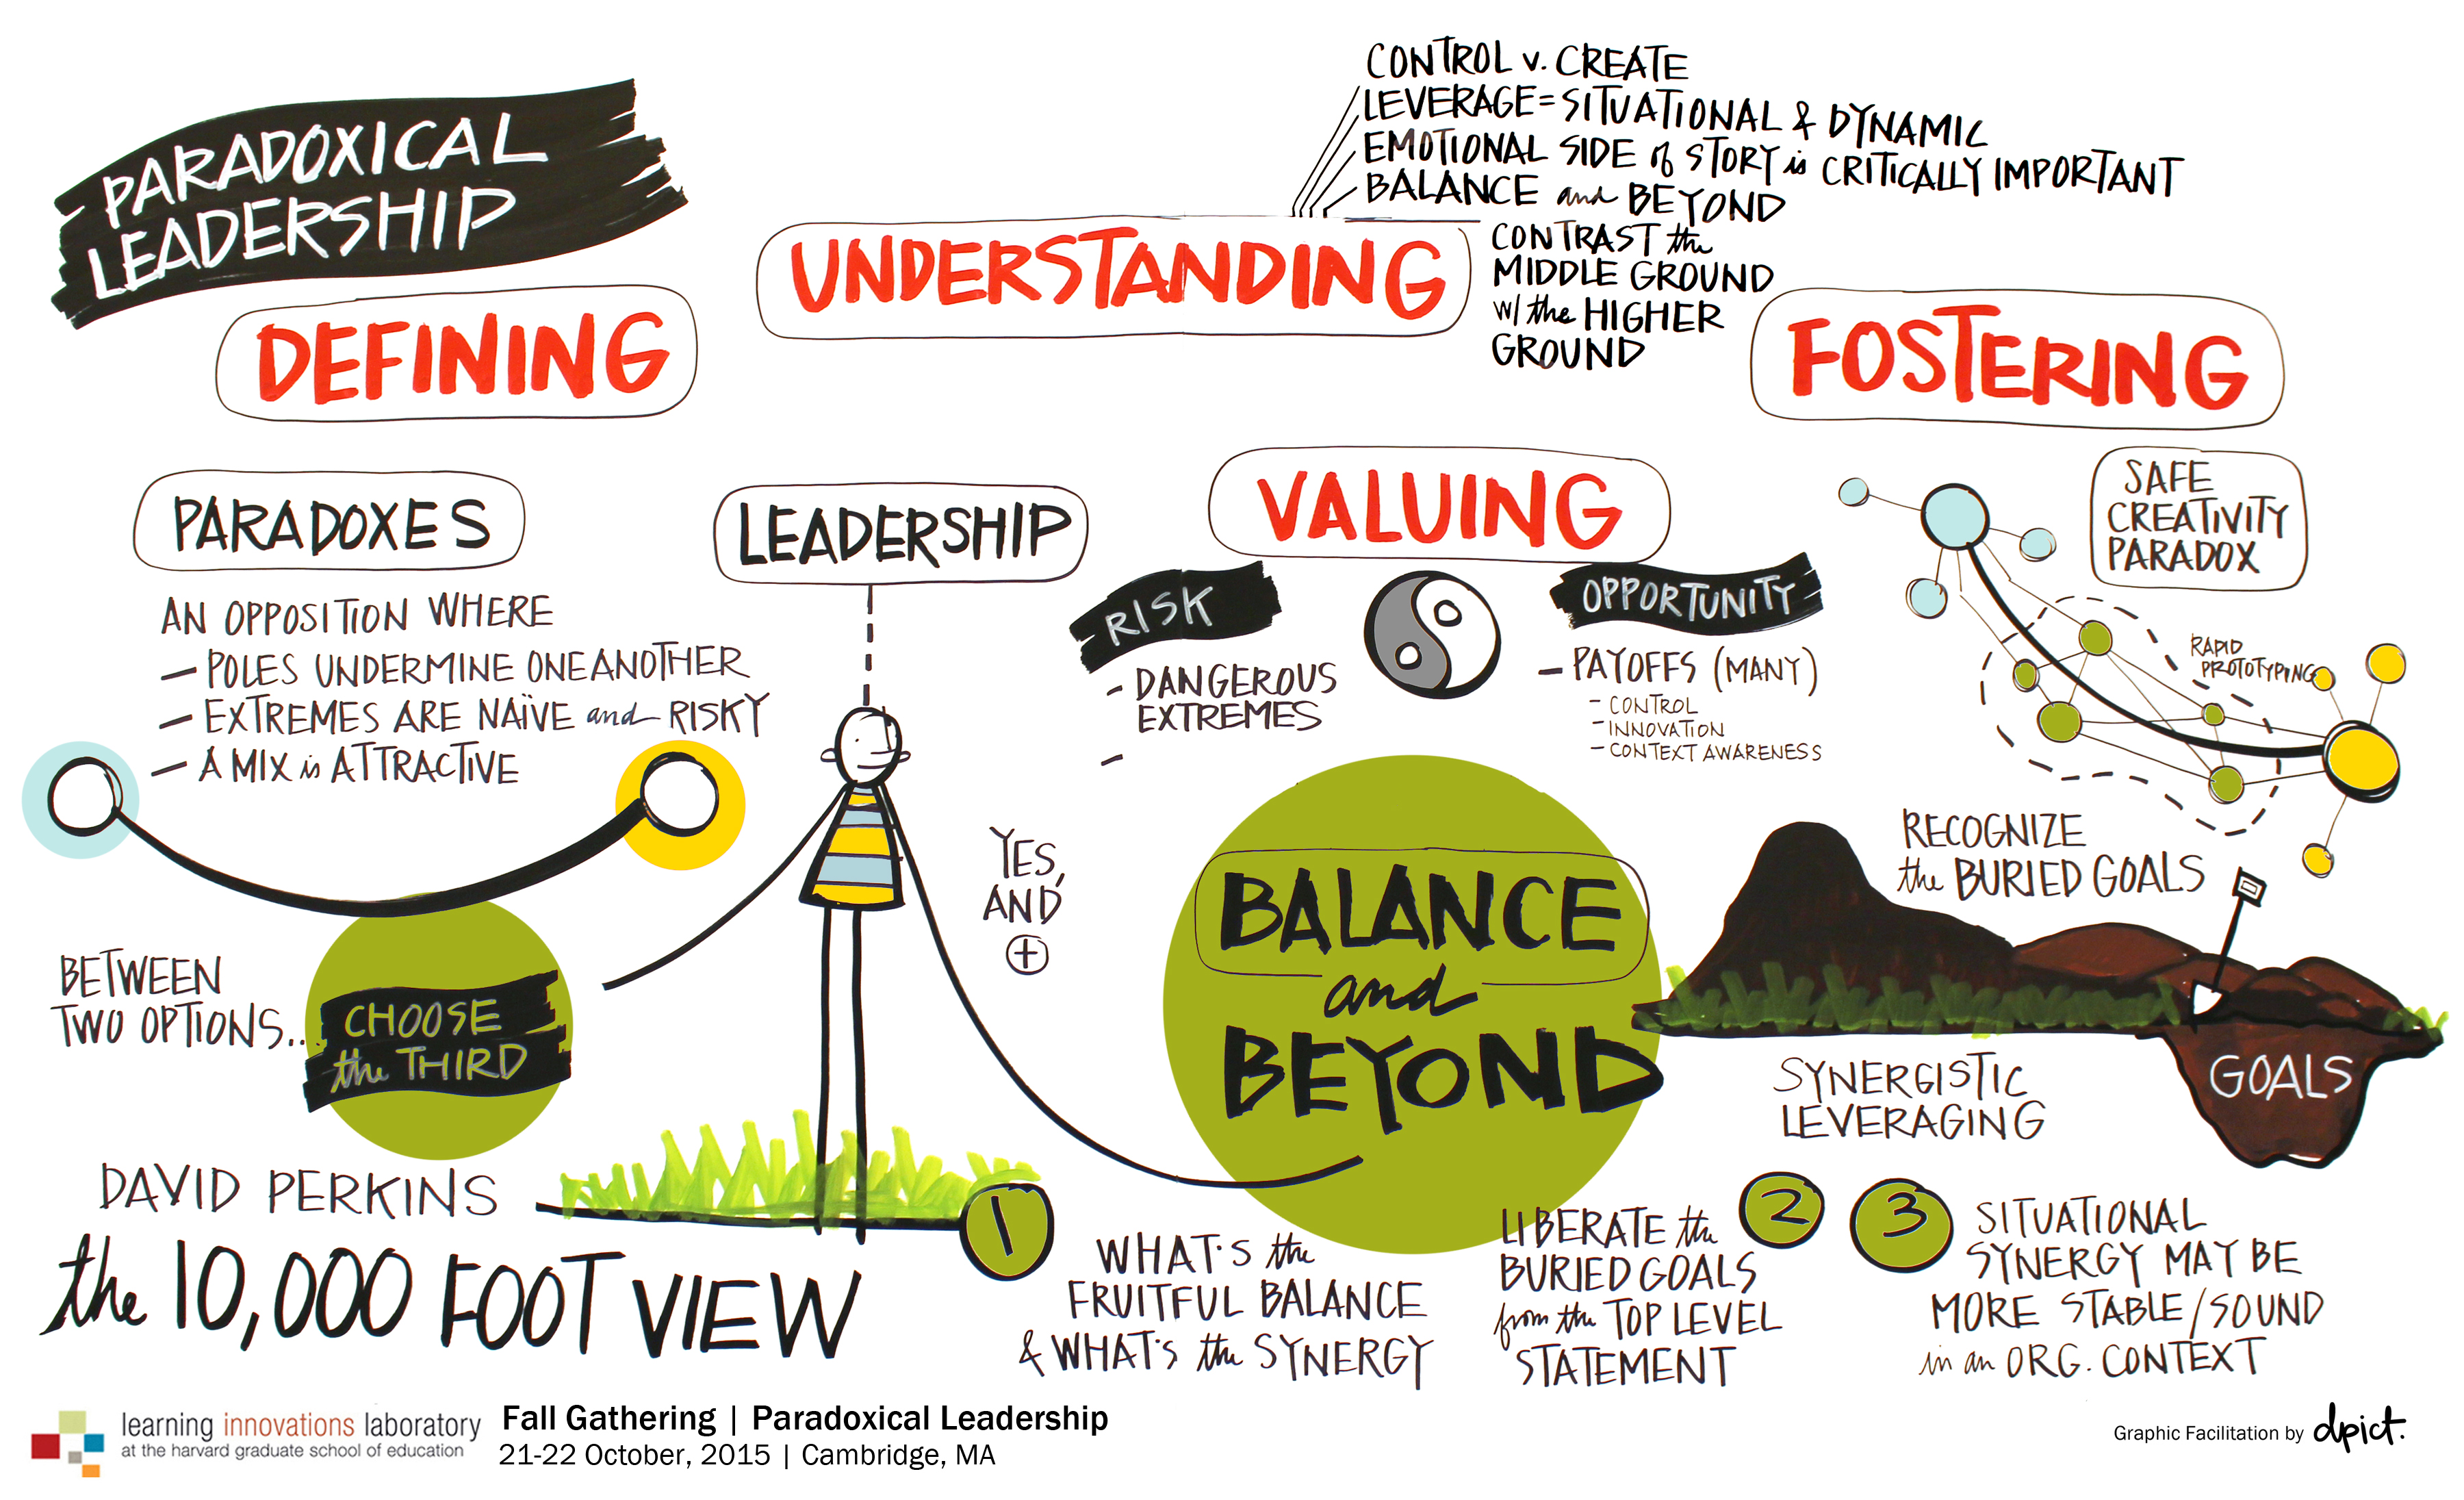 PARADOXICAL
LEADERSHIP
DEFINING
UNDERSTANDING
CONTROL v. CREATE
LEVERAGE = SITUATIONAL & DYNAMIC
EMOTIONAL SIDE of STORY is CRITICALLY IMPORTANT
BALANCE and BEYOND
CONTRAST the
MIDDLE GROUND
w/ the HIGHER
GROUND
FOSTERING
PARADOXES
AN OPPOSITION WHERE
— POLES UNDERMINE ONE ANOTHER
— EXTREMES ARE NAÏVE and RISKY
— A MIX is ATTRACTIVE
BETWEEN
TWO OPTIONS...
CHOOSE
the THIRD
LEADERSHIP
YES,
AND
+
VALUING
RISK
- DANGEROUS
EXTREMES
-
OPPORTUNITY
- PAYOFFS (MANY)
- CONTROL
- INNOVATION
- CONTEXT AWARENESS
BALANCE
and
BEYOND
SAFE
CREATIVITY
PARADOX
RAPID
PROTOTYPING
RECOGNIZE
the BURIED GOALS
GOALS
SYNERGISTIC
LEVERAGING
DAVID PERKINS
the 10,000 FOOT VIEW
1
WHAT'S the
FRUITFUL BALANCE
& WHAT'S the SYNERGY
2
LIBERATE the
BURIED GOALS
from the TOP LEVEL
STATEMENT
3
SITUATIONAL
SYNERGY MAY BE
MORE STABLE/SOUND
in an ORG. CONTEXT
learning innovations laboratory
at the harvard graduate school of education
Fall Gathering | Paradoxical Leadership
21-22 October, 2015 | Cambridge, MA
Graphic Facilitation by dpict.